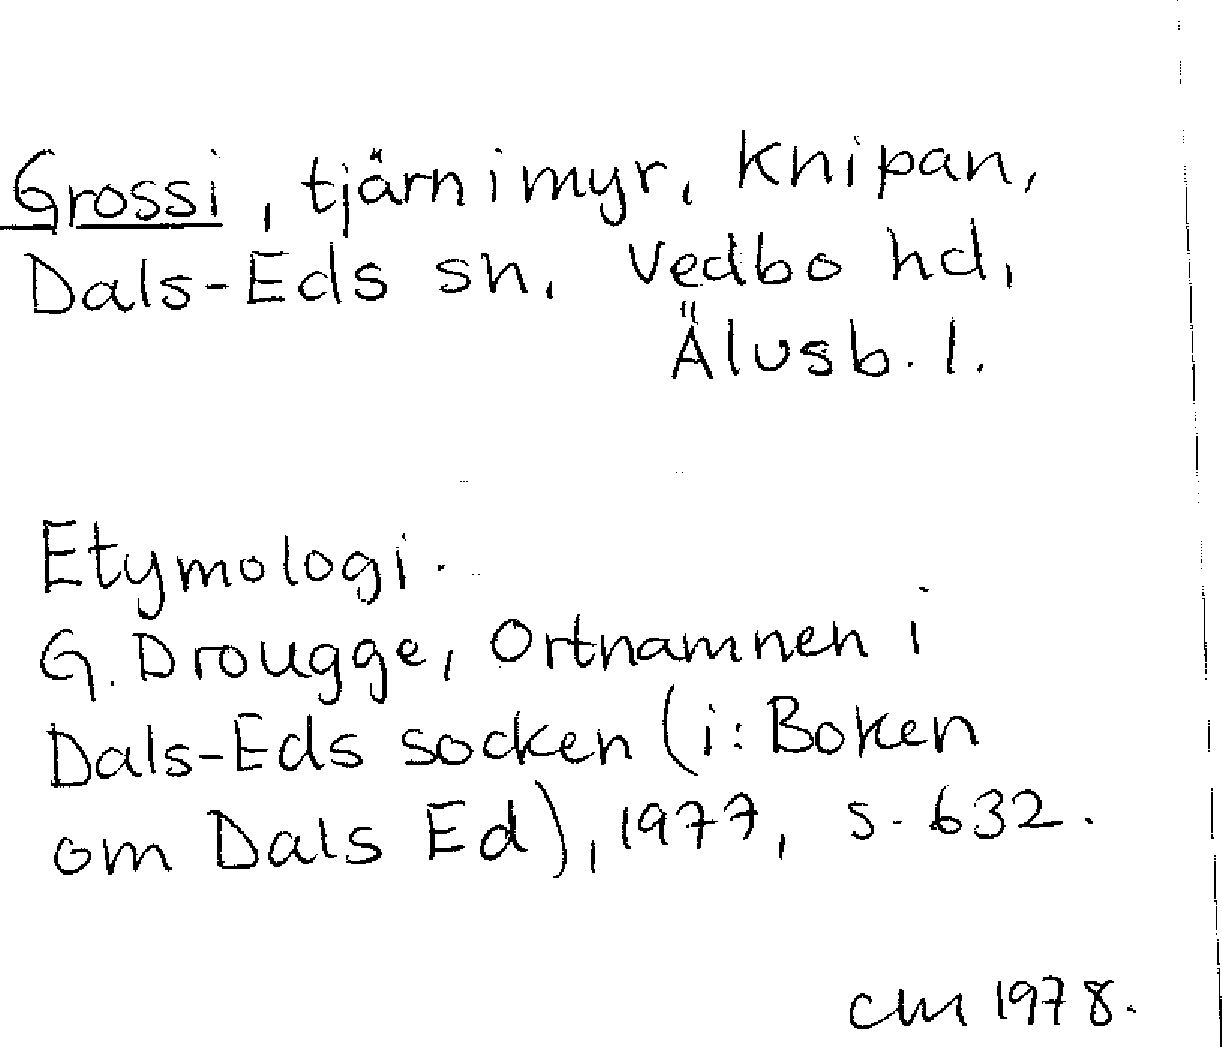 Grossi, tjärn i myr, Knipan,
Dals-Eds sn, Vedbo hd,
Älvsb. l.
Etymologi.
G. Drougge, Ortnamnen i
Dals-Eds socken (i: Boken
om Dals Ed), 1977, s. 632.
CM 1978.